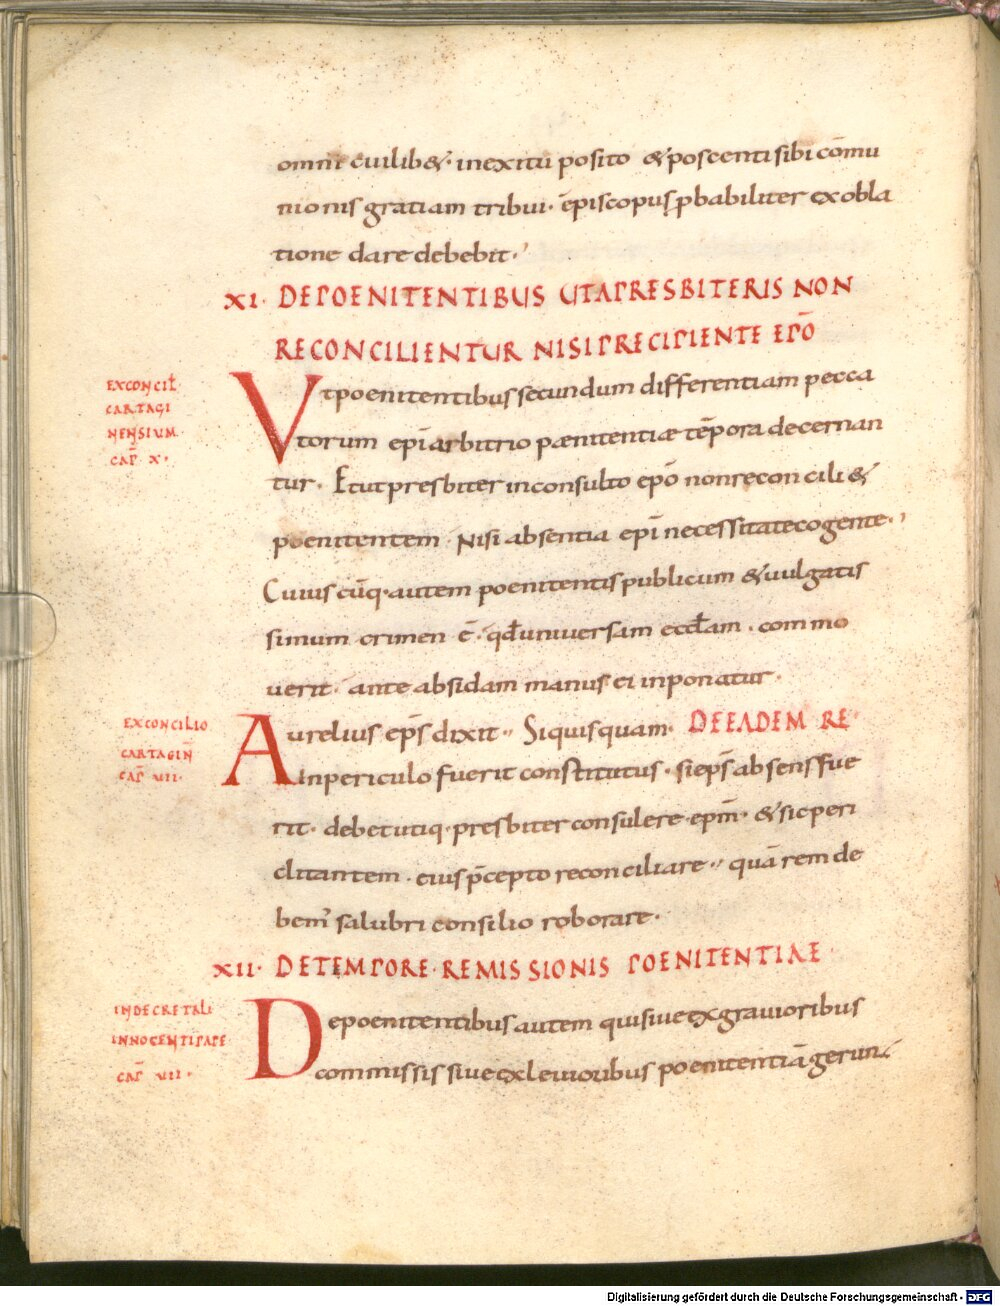 omni cuilib&· inexitu posito &poscenti sibi cōmu
nionis gratiam tribui· ēpiscopus pbabiliter exobla
tione dare debebit·
XI· DEPOENITENTIBUS UTAPRESBITERIS NON
RECONCILIENTUR NISI PRECIPIENTE EPŌ
EXCONCIL̄·
CARTAGI
NENSIUM·
CAP̄ X·
Vtpoenitentibus secundum differentiam pecca
torum epī arbitrio pænitentiæ tēpora decernan
tur· Etut presbiter inconsulto epō nonreconcili&
poenitentem· Nisi absentia epī necessitate cogente·,
Cuius cūq· autem poenitentis publicum &uulgatis
simum crimen ē· qđ uniuersam eccl̄am· commo
uerit· ante absidam manus ei inponatur·
EXCONCILIO
CARTAGIN̄
CAP̄ VII·
Aurelius ep̄s dixit·· Siquisquam· DE EADEM RE·
Inpericulo fuerit constitutus· si ep̄s absens fue
rit· debet utiq· presbiter consulere· ep̄m· & sic peri
clitantem· eius p̄cepto reconciliare·· quā rem de
bem' salubri consilio roborare·
XII· DETEMPORE· REMISSIONIS POENITENTIAE
INDECRETALI
INNOCENTI PAPE
CAP̄ VII·
Depoenitentibus autem qui siue exgrauioribus
commissis siue exleuioribus poenitentiā gerun·
Digitalisierung gefördert durch die Deutsche Forschungsgemeinschaft - DFG